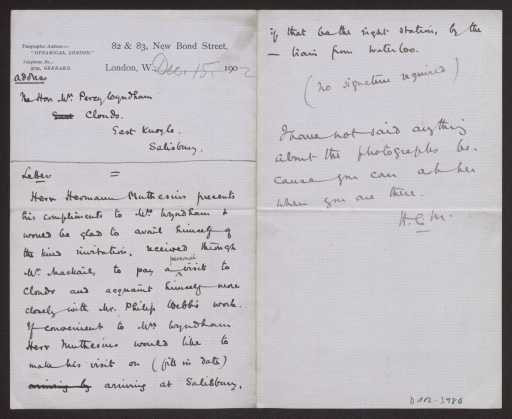 Telegraphic Address:—
82 & 83, New Bond Street,
Telephone No.:
GERRARD.
London, W. Dec. 15. 1902
address
The Hon. Mrs. Percy Wyndham
Clouds.
East Knoyle.
Salisbury.
Letter =
Herr Hermann Muthesius presents
his compliments to Mrs Wyndham &
would be glad to avail himself of
the kind invitation, received through
Mr. Mackail, to pay a personal visit to
Clouds and acquaint himself more
closely with Mr. Philip Webb's work.
If convenient to Mrs Wyndham
Herr Muthesius would like to
make his visit on (fill in date)
arriving by arriving at Salisbury,
if that be the right station, by the
— train from Waterloo.
(no signature required)
I have not said anything
about the photographs be-
cause you can ask her
when you are there.
H.C.M.